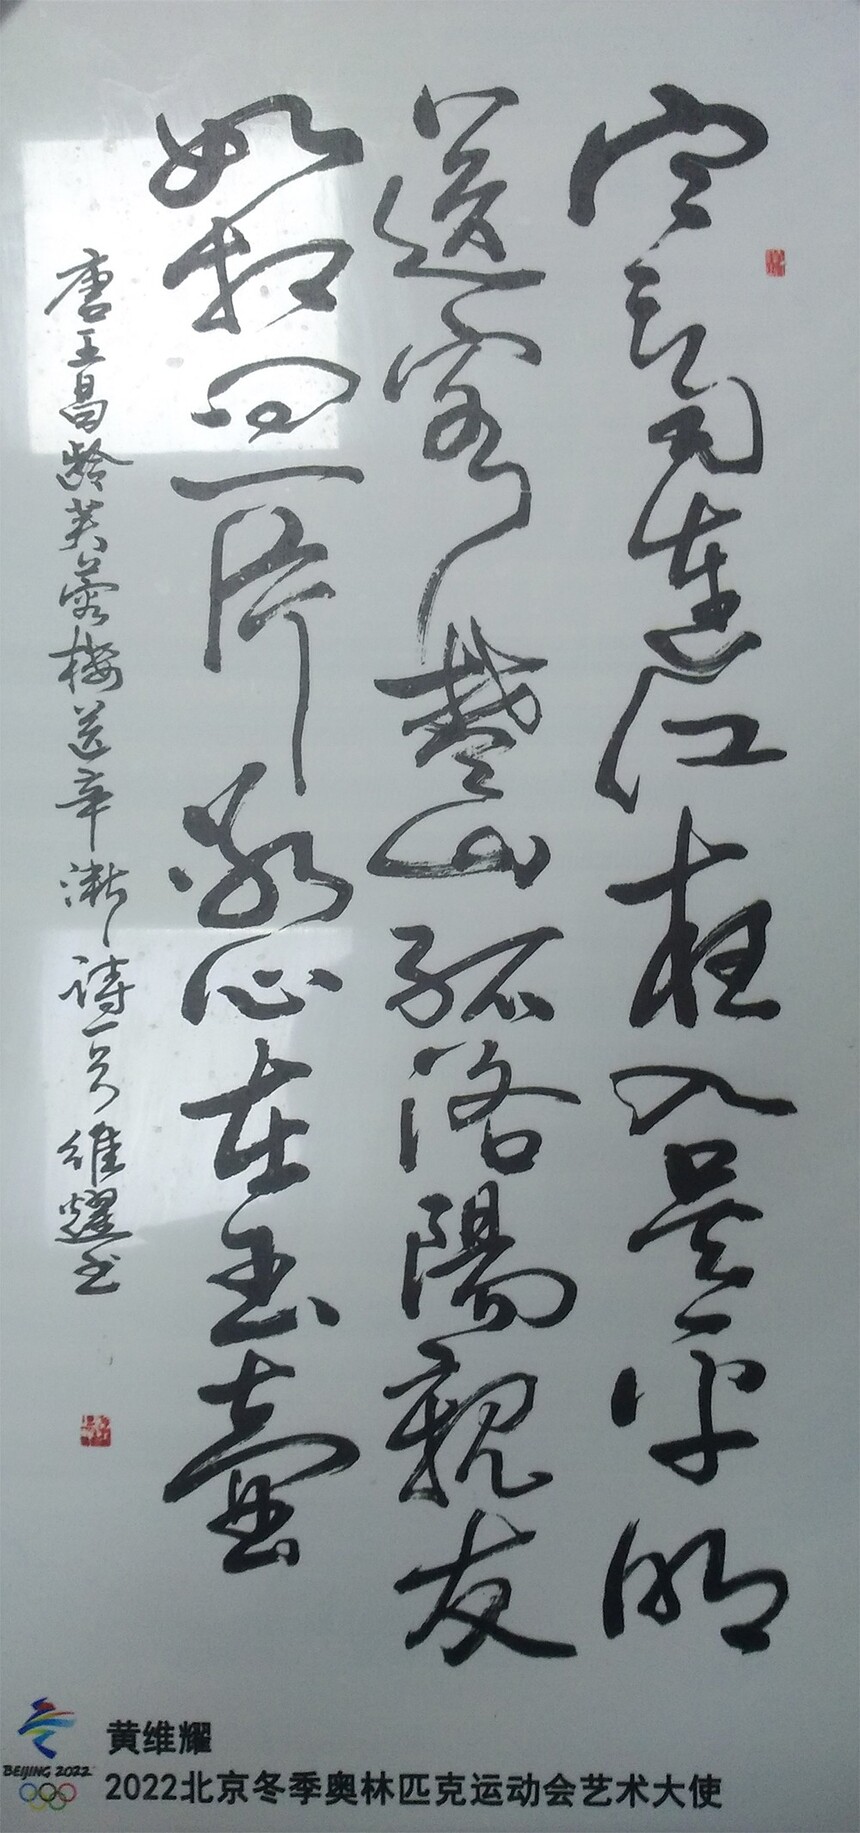 寒雨連江夜入吳平明
送客楚山孤洛陽親友
如相问一片冰心在玉壺
唐王昌龄芙蓉楼送辛漸詩一首維耀书
BEIJING 2022
黄维耀
2022北京冬季奥林匹克运动会艺术大使